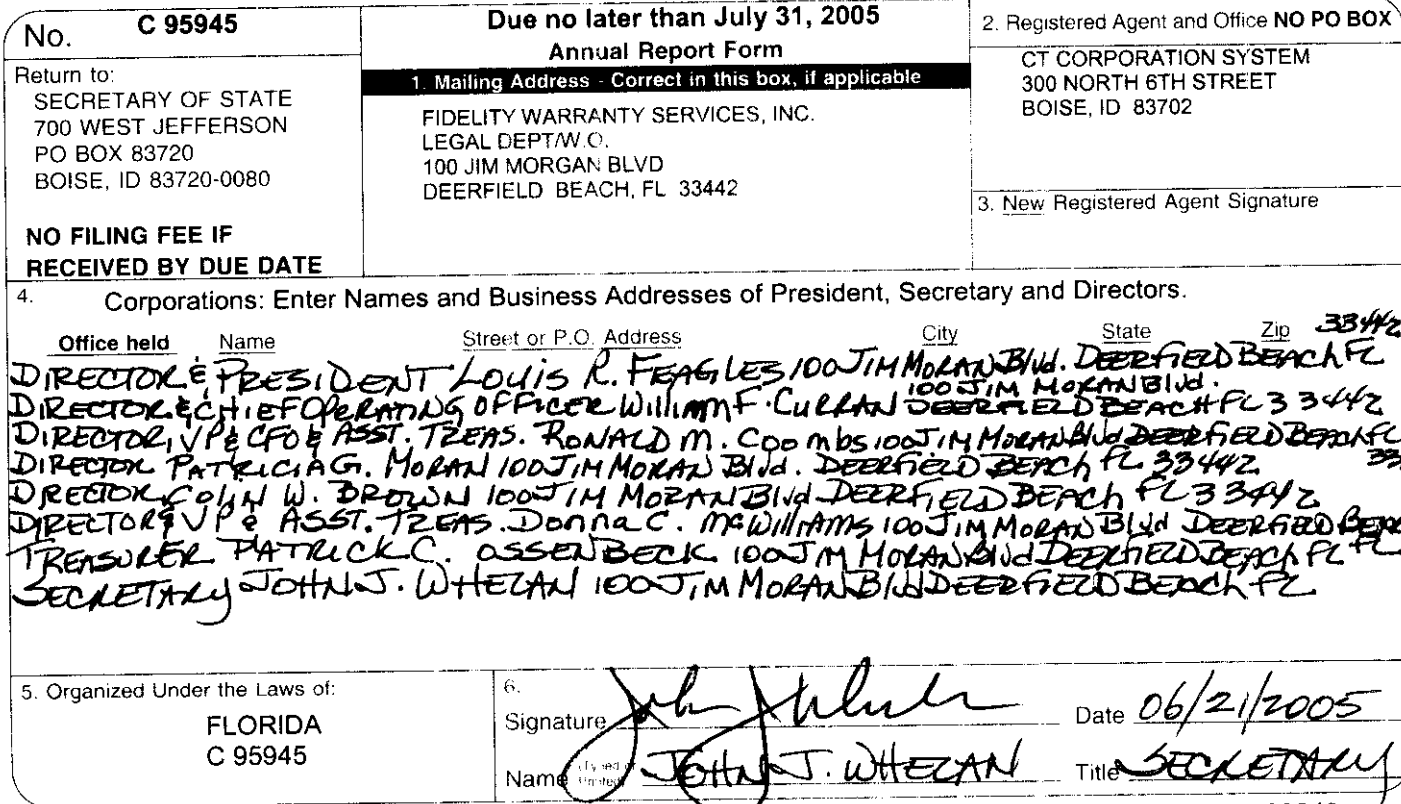 No. C 95945
Return to:
SECRETARY OF STATE
700 WEST JEFFERSON
PO BOX 83720
BOISE, ID 83720-0080
NO FILING FEE IF
RECEIVED BY DUE DATE
Due no later than July 31, 2005
Annual Report Form
1. Mailing Address - Correct in this box, if applicable
FIDELITY WARRANTY SERVICES, INC.
LEGAL DEPT/W.O.
100 JIM MORGAN BLVD
DEERFIELD BEACH, FL 33442
2. Registered Agent and Office NO PO BOX
CT CORPORATION SYSTEM
300 NORTH 6TH STREET
BOISE, ID 83702
3. New Registered Agent Signature
4. Corporations: Enter Names and Business Addresses of President, Secretary and Directors.
Office held Name Street or P.O. Address City State Zip 33442
DIRECTOR & PRESIDENT LOUIS R. FEAGLES 100 JIM MORAN Blvd. DEERFIELD BEACH FL
100 JIM MORAN Blvd.
DIRECTOR & CHIEF OPERATING OFFICER William F. CURRAN DEERFIELD BEACH FL 33442
DIRECTOR, VP & CFO & ASST. TREAS. RONALD M. Coombs 100 JIM MORAN Blvd DEERFIELD BEACH FL
DIRECTOR PATRICIA G. MORAN 100 JIM MORAN Blvd. DEERFIELD BEACH FL 33442 33
DIRECTOR COLIN W. BROWN 100 JIM MORAN Blvd DEERFIELD BEACH FL 33442
DIRECTOR & VP & ASST. TREAS. Donna C. McWilliAMS 100 JIM MORAN Blvd DEERFIELD BEAC
TREASURER PATRICK C. OSSENBECK 100 JM MORAN Blvd DEERFIELD BEACH FL FL
SECRETARY JOHN J. WHELAN 100 JIM MORAN Blvd DEERFIELD BEACH FL
5. Organized Under the Laws of:
FLORIDA
C 95945
6.
Signature Date 06/21/2005
Name JOHN J. WHELAN Title SECRETARY